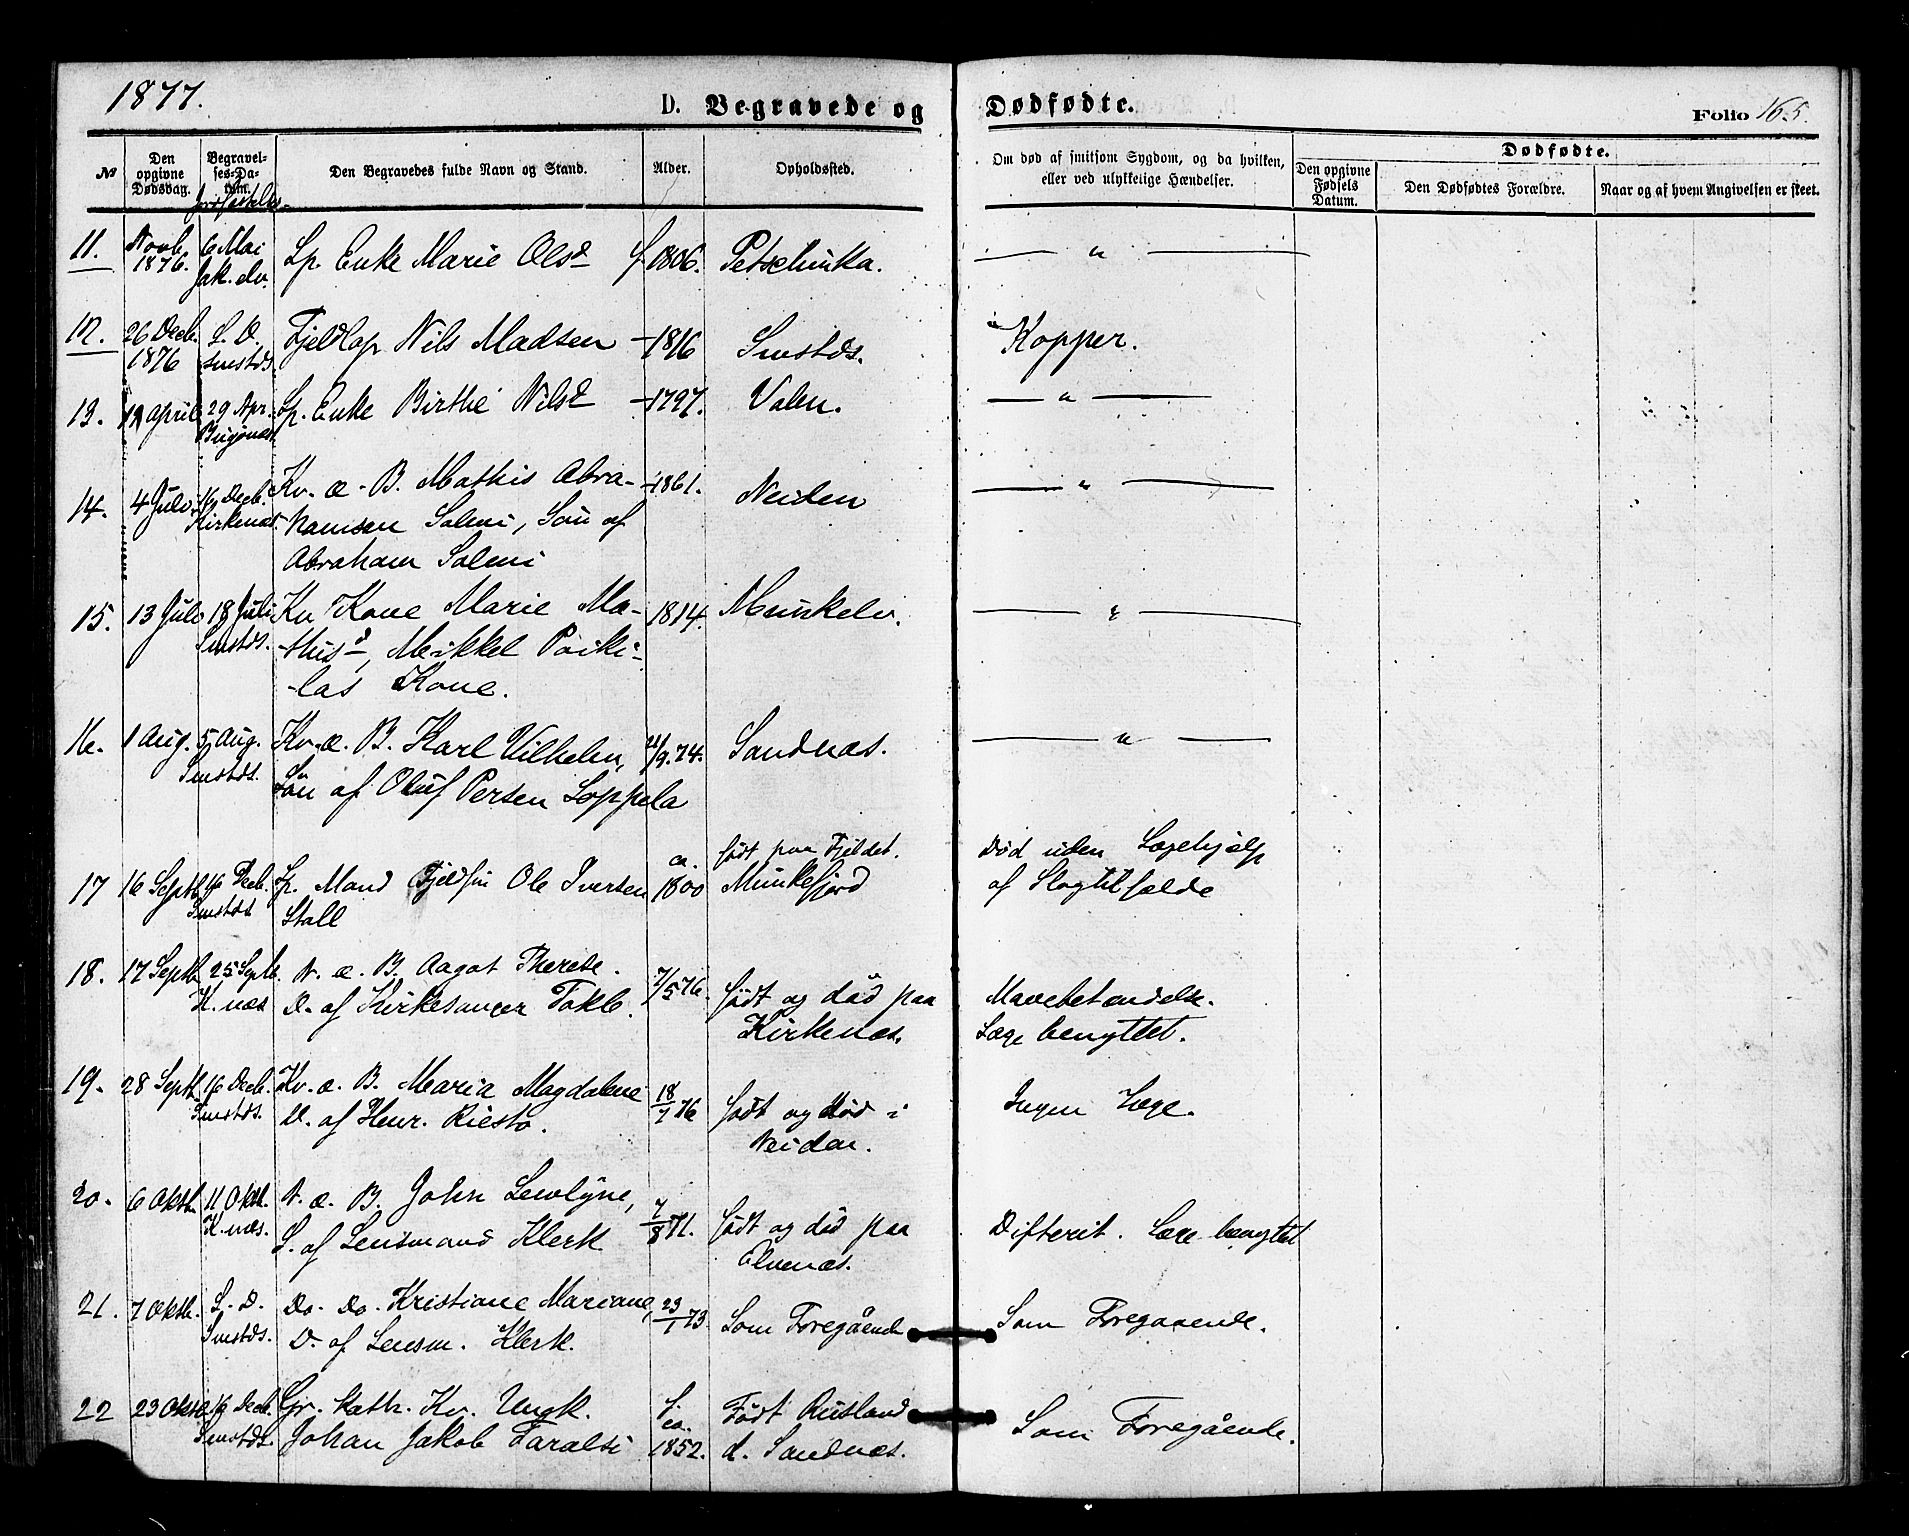 1877.
D. Begravede og Dødfødte.
Folio 165.
№
Den opgivne Dødsdag.
Begravelses-Datum.
Jordfæstelse-
Den Begravedes fulde Navn og Stand.
Alder.
Opholdssted.
Om død af smitsom Sygdom, og da hvilken,
eller ved ulykkelige Hændelser.
Dødfødte.
Den opgivne Fødsels Datum.
Den Dødfødtes Forældre.
Naar og af hvem Angivelsen er skeet.
11. Novb. 6 Mai Lp. Enke Marie Olsd f. 1806. Petschinka. — " —
1876. Jak. elv.
12. 26 Decb. S. D. Fjeldlap Nils Madsen – 1816 Smstds. Kopper.
1876 Smstds
13. 12 April 29 Apr. Lp. Enke Birthe Nilsd – 1797. Valen. — " —
Bugønæs
14. 4 Juli 16 Decb. Kv. æ. B. Mathis Abra- – 1861. Neiden — " —
Kirkenæs. hamsen Salmi, Søn af
Abraham Salmi
15. 13 Juli 18 Juli Kv. Kone Marie Ma- 1814. Munkelv. — " —
Smstds. -thisd, Mikkel Poiki-
-las Kone.
16. 1 Aug. 5 Aug. Kv. æ. B. Karl Vilhelm, /9. 74. Sandnæs. — " —
Smstds. Søn af Oluf Persen Loppela
17 16 Septb. 16 Decb. Lp. Mand Fjeldfin Ole Iversen ca. 1800 født paa Fjeldet. Død uden Lægehjælp
Smstds. Stall Munkefjord af Slagtilfælde
18. 17 Septb. 25 Septb. N. æ. B. Aagot Therese. 7/5 76. født og død paa Mavebetændelse.
K.næs D. af Kirkesanger Tokle. Kirkenæs. Læge benyttet.
19. 28 Septb. 16 Decb. Kv. æ. B. Maria Magdalene 18/7 76 født og død i Ingen Læge.
Smstds. D. af Henr. Riesto. Neiden.
20. 6 Oktb. 11 Oktb. N. æ. B. John 7/8 71. født og død paa Difterit. Læge benyttet
K.næs. S. af Lensmand Klerk Elvenæs.
21. 7 Oktb. S. D. Do. Do. Kristiane Mariane, 23/1 73. Som Foregående Som Foregaaende.
Smstds. D. af Lensm. Klerk.
22 23 Oktb. 16 Decb. Gr. kath. Kv. Ungk. f. ca. 1852. Født Rusland Som Foregående.
Smstds. Johan Jakob d. Sandnæs.